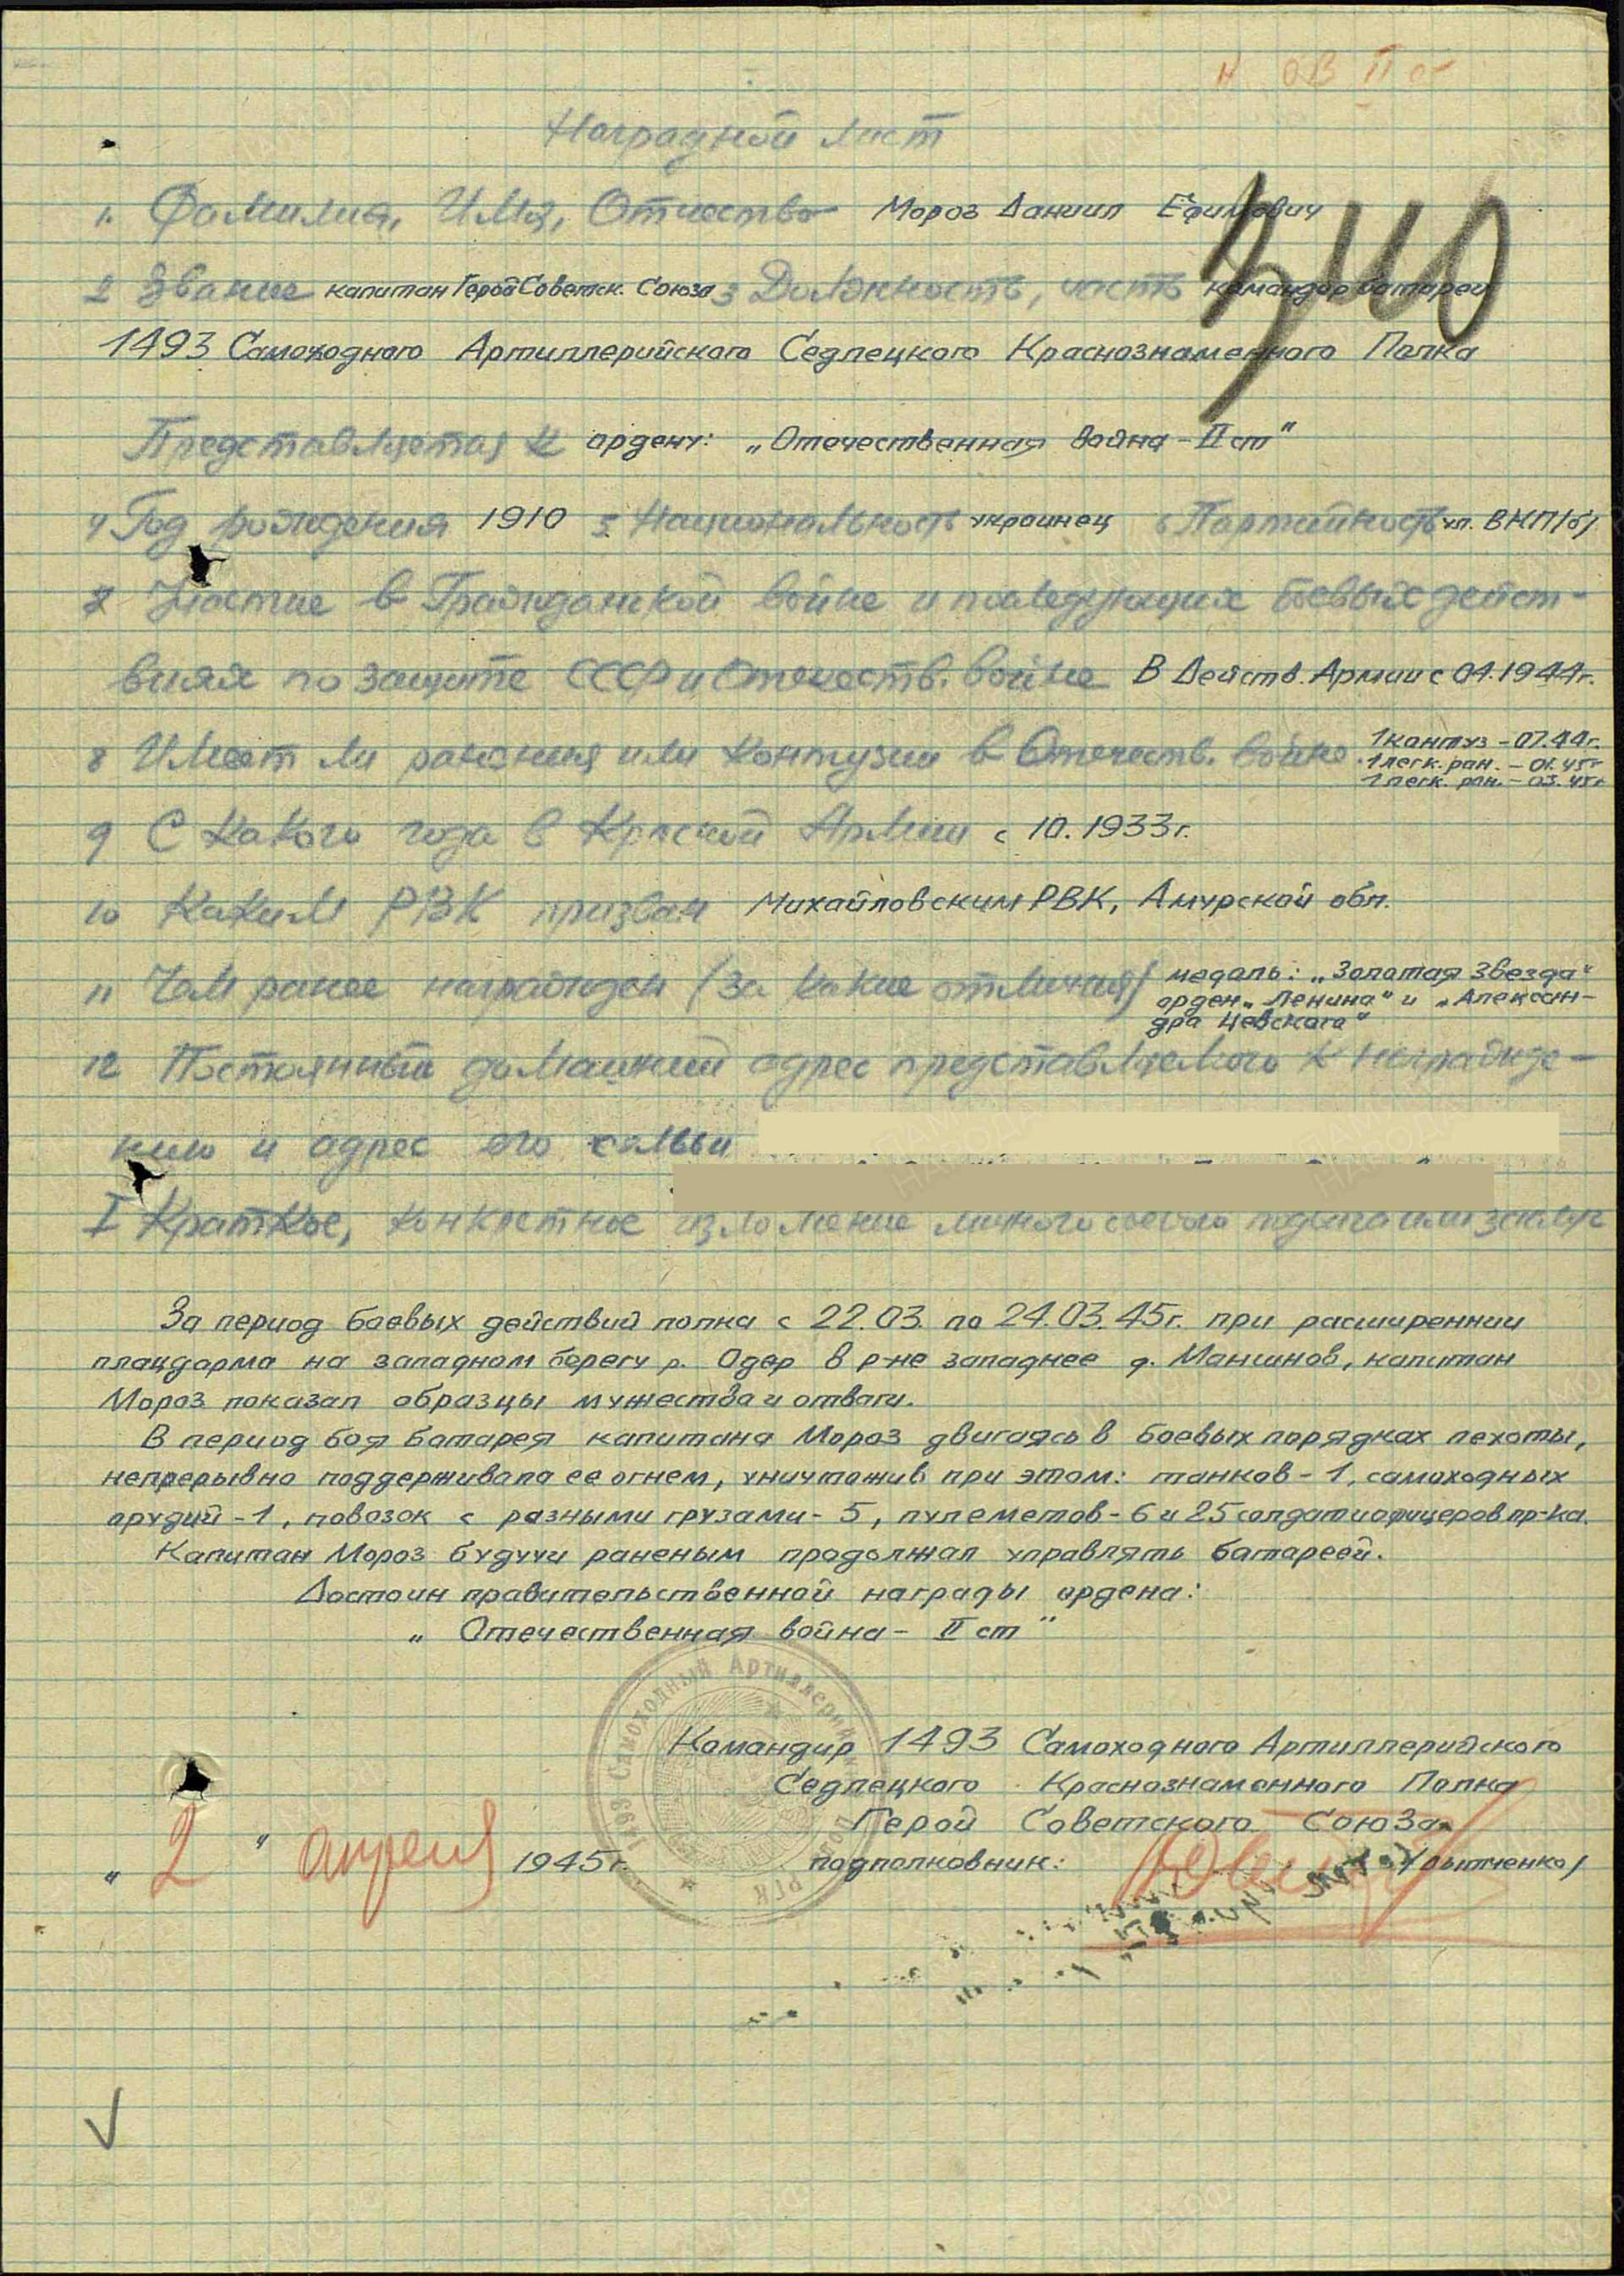 Наградной лист
1. Фамилия, Имя, Отчество Мороз Даниил Ефимович
2 Звание капитан Герой Советск. Союза 3 Должность, часть командир батареи
1493 Самоходного Артиллерийского Седлецкого Краснознаменного Полка
340
Представляется к ордену: „Отечественная война – II ст"
4 Год рождения 1910 5 Национальность украинец 6 Партийность чл. ВКП/б/
7 Участие в Гражданской войне и последующих боевых дейст-
виях по защите СССР и Отечеств. войне В Действ. Армии с 04.1944г.
8 Имеет ли ранения или контузии в Отечеств. войне 1 контуз – 07.44г.
1 легк. ран. – 01.45г
1 легк. ран. – 03.45г
9 С какого года в Красной Армии с 10.1933г.
10 Каким РВК призван Михайловским РВК, Амурской обл.
11 Чем ранее награжден (за какие отличия) медаль: „Золотая Звезда"
орден „Ленина" и „Алексан-
дра Невского"
12 Постоянный домашний адрес представляемого к награжде-
нию и адрес его семьи
I Краткое, конкретное изложение личного боевого подвига или заслуг
За период боевых действий полка с 22.03. по 24.03.45г. при расширении
плацдарма на западном берегу р. Одер в р-не западнее д. Маншнов, капитан
Мороз показал образцы мужества и отваги.
В период боя батарея капитана Мороз двигаясь в боевых порядках пехоты,
непрерывно поддерживала ее огнем, уничтожив при этом: танков – 1, самоходных
орудий – 1, повозок с разными грузами – 5, пулеметов – 6 и 25 солдат и офицеров пр-ка.
Капитан Мороз будучи раненым продолжал управлять батареей.
Достоин правительственной награды ордена:
„ Отечественная война – II ст "
1493 Самоходный Артиллерийский Полк РГК
Командир 1493 Самоходного Артиллерийского
Седлецкого Краснознаменного Полка
Герой Советского Союза
„ 2 " апреля 1945г. подполковник: